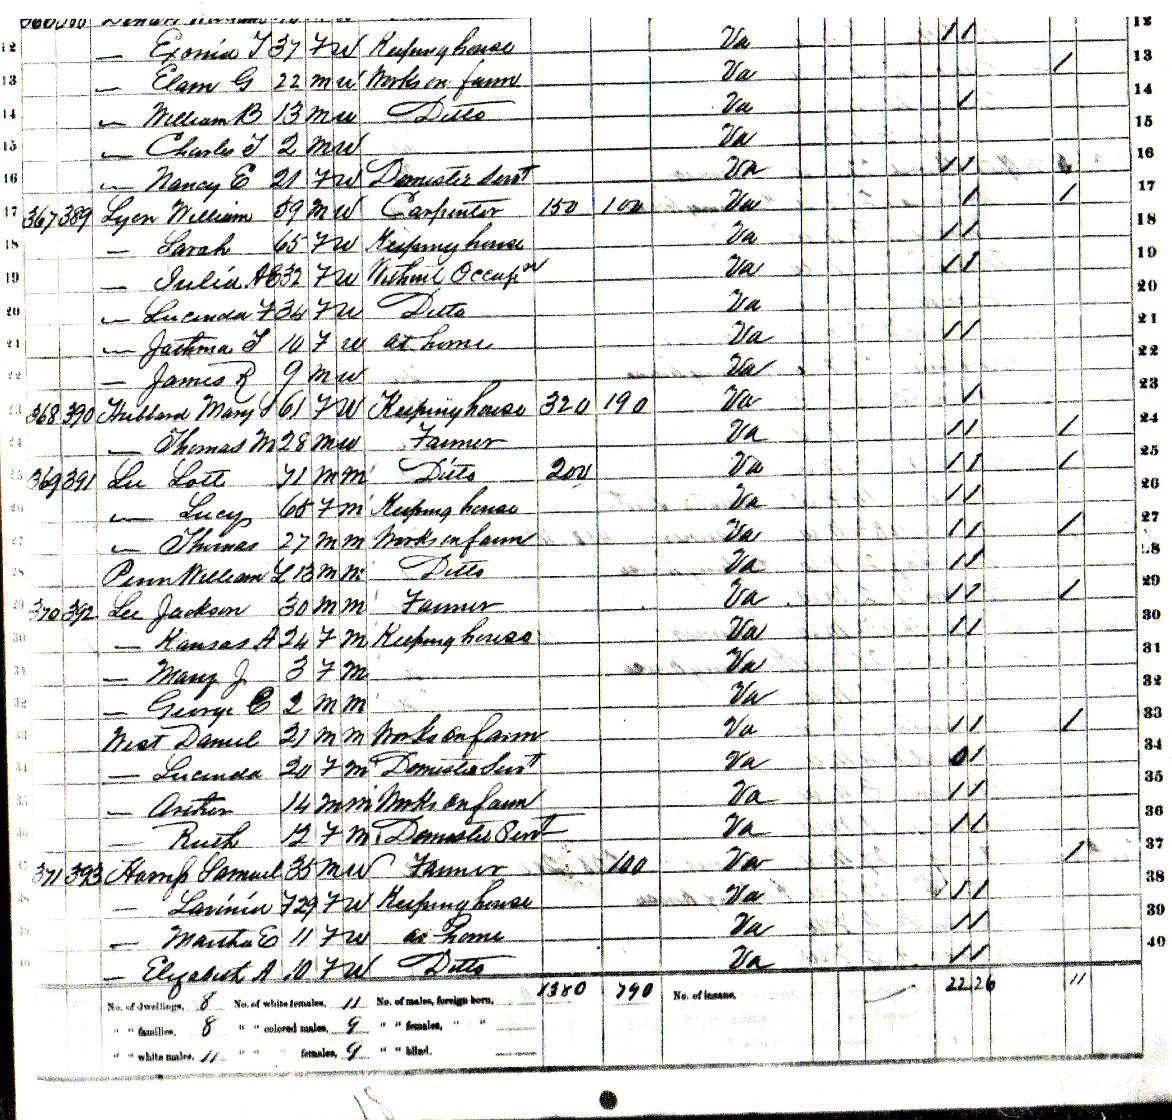 12 — Exonia T 37 F W Keeping house Va 1 1 12
13 — Elam G 22 M W Works on farm Va 1 13
14 — William B 13 M W Ditto Va 1 14
15 — Charles T 2 M W Va 15
16 — Nancy E 21 F W Domestic Servt Va 1 1 16
17 367 389 Lyon William 59 M W Carpenter 150 100 Va 1 1 17
18 — Sarah 65 F W Keeping house Va 1 1 18
19 — Julia 32 F W Without Occupn Va 1 1 19
20 — Lucinda F 34 F W Ditto Va 20
21 — T 10 F W at home Va 1 1 21
22 — James R 9 M W Va 22
23 368 390 Hubbard Mary 61 F W Keeping house 320 190 Va 1 23
24 — Thomas M 28 M W Farmer Va 1 1 1 24
25 369 391 Lee Lott 71 M M Ditto 200 Va 1 1 1 25
26 — Lucy 68 F M Keeping house Va 1 1 26
27 — Thomas 27 M M Works on farm Va 1 1 1 27
28 Penn William L 13 M M Ditto Va 1 1 28
29 370 392 Lee Jackson 30 M M Farmer Va 1 1 1 29
30 — Kansas A 24 F M Keeping house Va 1 1 30
31 — Mary J 3 F M Va 31
32 — George E 2 M M Va 32
33 West Daniel 21 M M Works on farm Va 1 1 1 33
34 — Lucinda 20 F M Domestic Servt Va 1 34
35 — 14 M M Works on farm Va 1 1 35
36 — Ruth 12 F M Domestic Servt Va 1 1 36
37 371 393 Samuel 35 M W Farmer 100 Va 1 37
38 — Lavinia F 29 F W Keeping house Va 1 1 38
39 — Martha E 11 F W at home Va 1 1 39
40 — Elizabeth A 10 F W Ditto Va 1 1 40
No. of dwellings, 8 No. of white females, 11 No. of males, foreign born, 1380 790 No. of insane, 22 26 11
" " families, 8 " " colored males, 9 " " females, " "
" " white males, 11 " " " females, 9 " " blind.